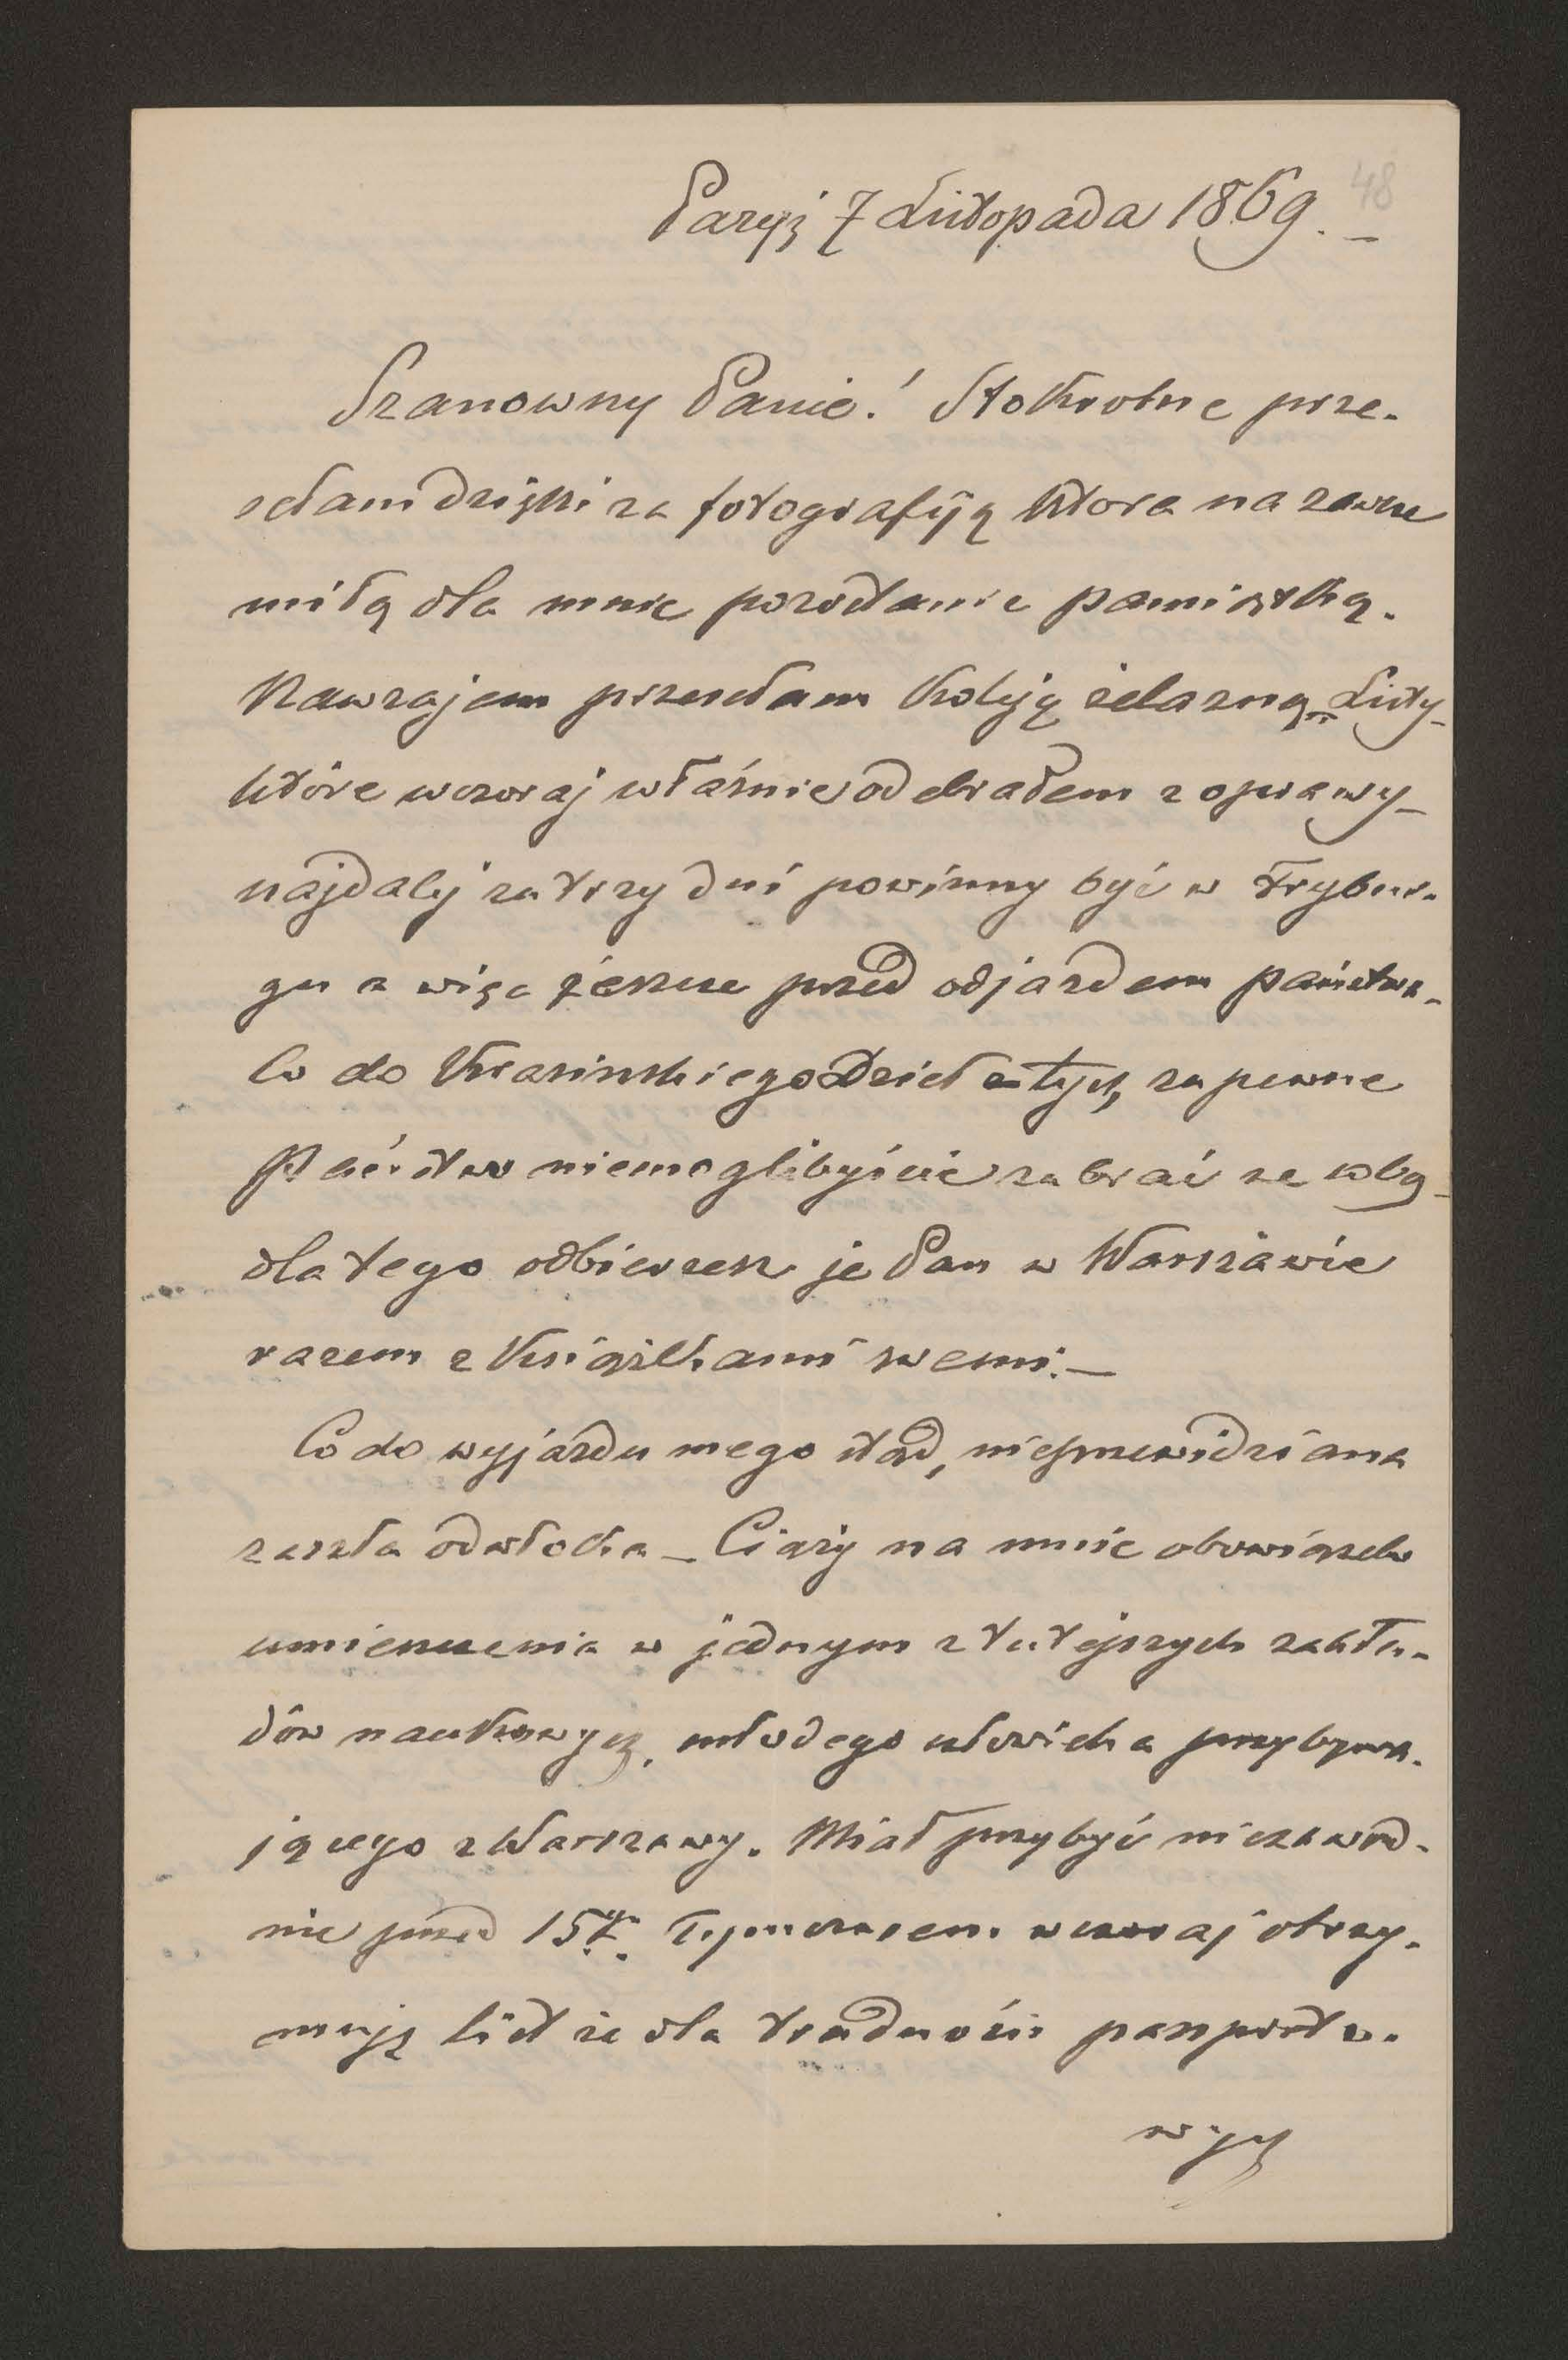 48
Paryż 7 Listopada 1869. –
Szanowny Panie! Stokrotne prze-
sełam dzięki za fotografiją która na zawsze
miłą dla mnie pozostanie pamiątką.
Nawzajem przesełam koleją żelazną Listy
które wczoraj właśnie odebrałem z oprawy –
najdalej za trzy dni powinny być w Frybur-
gu a więc jeszcze przed odjazdem państwa –
Co do Krasińskiego Dzieł tych zapewne
Państwo niemoglibyście zabrać ze sobą –
dla tego odbierzesz je Pan w Warszawie
razem z Książkami swemi. –
Co do wyjazdu mego ztąd, nieprzewidziana
zaszła odwłoka – Ciąży na mnie obowiązek
umieszczenia w jednym z tutejszych zakła-
dów naukowych, młodego człowieka przybywa-
jącego z Warszawy. Miał przybyć niezawod-
nie przed 15. Tymczasem wczoraj otrzy-
muję list że dla trudności paszporto-
wych